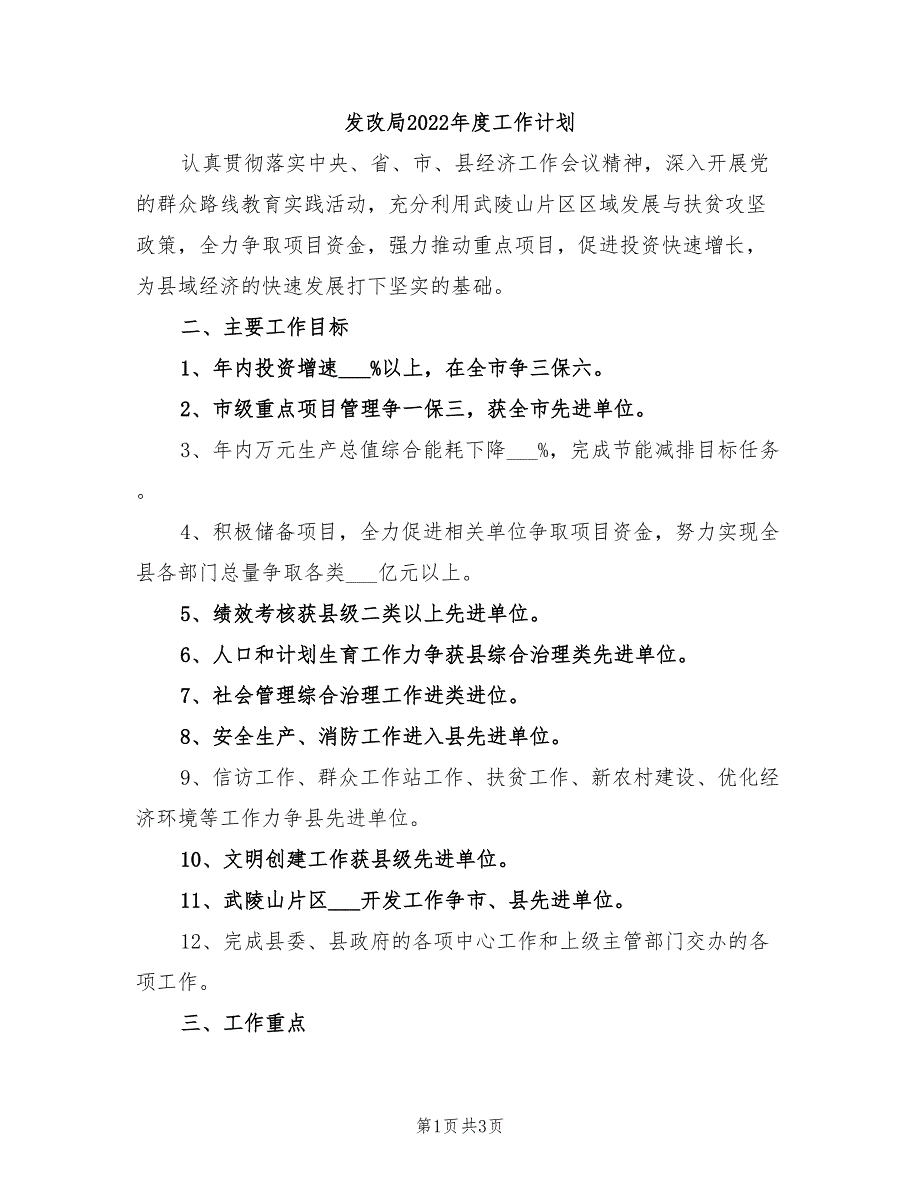 发改局2022年度工作计划
认真贯彻落实中央、省、市、县经济工作会议精神，深入开展党
的群众路线教育实践活动，充分利用武陵山片区区域发展与扶贫攻坚
政策，全力争取项目资金，强力推动重点项目，促进投资快速增长，
为县域经济的快速发展打下坚实的基础。
二、主要工作目标
1、年内投资增速___%以上，在全市争三保六。
2、市级重点项目管理争一保三，获全市先进单位。
3、年内万元生产总值综合能耗下降___%，完成节能减排目标任务
。
4、积极储备项目，全力促进相关单位争取项目资金，努力实现全
县各部门总量争取各类___亿元以上。
5、绩效考核获县级二类以上先进单位。
6、人口和计划生育工作力争获县综合治理类先进单位。
7、社会管理综合治理工作进类进位。
8、安全生产、消防工作进入县先进单位。
9、信访工作、群众工作站工作、扶贫工作、新农村建设、优化经
济环境等工作力争县先进单位。
10、文明创建工作获县级先进单位。
11、武陵山片区___开发工作争市、县先进单位。
12、完成县委、县政府的各项中心工作和上级主管部门交办的各
项工作。
三、工作重点
第1页共3页